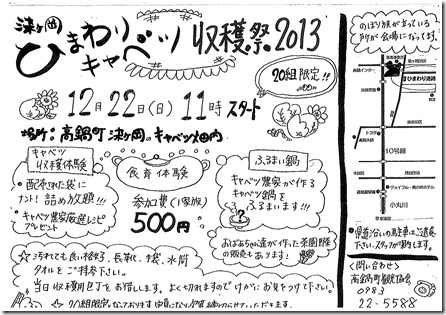 染ヶ岡
ひまわりキャベツ収穫祭2013
20組限定!!
12月22日(日)11時スタート
場所:高鍋町染ヶ岡のキャベツ畑内
キャベツ収穫体験
配布された袋に
ナント!詰め放題!!
キャベツ農家厳選レシピ
プレゼント
食育体験
参加費(1家族)
500円
ふるまい鍋
キャベツ農家が作る
キャベツ鍋を
ふるまいます!!!
おばあちゃん達が作った菜園野菜
の販売もあります!
☆汚れても良い格好、長靴、袋、水筒
タオルをご持参下さい。
当日収穫用包丁をお貸しします。よく切れますのでけがにお気をつけて下さい。
☆20組限定となっております
のぼり旗が立っている
所が会場になってます。
ひまわり迷路
10号線
小丸川
県道沿いの駐車はご遠慮
下さい。スタッフが誘導します。
<問い合わせ>
高鍋町観光協会
0983
22-5588